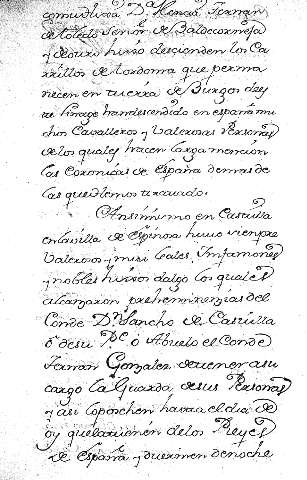 con su hixa Dª Mencia Fernan
de toledo señor de Baldecorneja
y de suso hixo descienden los Ca
rrillos de tordomar que perma
necen en tierra de Burgos des
te linage han descendido en españa mu
chos Cavalleros y Valerosas Personas
de los quales hacen larga mencion
las coronicas de España demas de
las que emos tratado.
Ansimismo en Castilla
en la villa de Espinosa huvo siempre
Valerosos y mui leales, Infanzones
y nobles hixos dalgo los quales
alcanzaron preheminenzias del
Conde Dn Sancho de Castilla
o de su Pe o Abuelo el Conde
Fernan Gonzalez de tener a su
cargo la Guarda de sus Personas
y asi lo ponen hasta el dia de
oy que la tienen de los Reyes
de España y duermen de noche